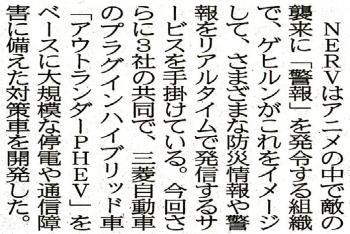 NERVはアニメの中で敵の
襲来に「警報」を発令する組織
で、ゲヒルンがこれをイメージ
して、さまざまな防災情報や警
報をリアルタイムで発信するサ
ービスを手掛けている。今回さ
らに3社の共同で、三菱自動車
のプラグインハイブリッド車
「アウトランダーPHEV」を
ベースに大規模な停電や通信障
害に備えた対策車を開発した。